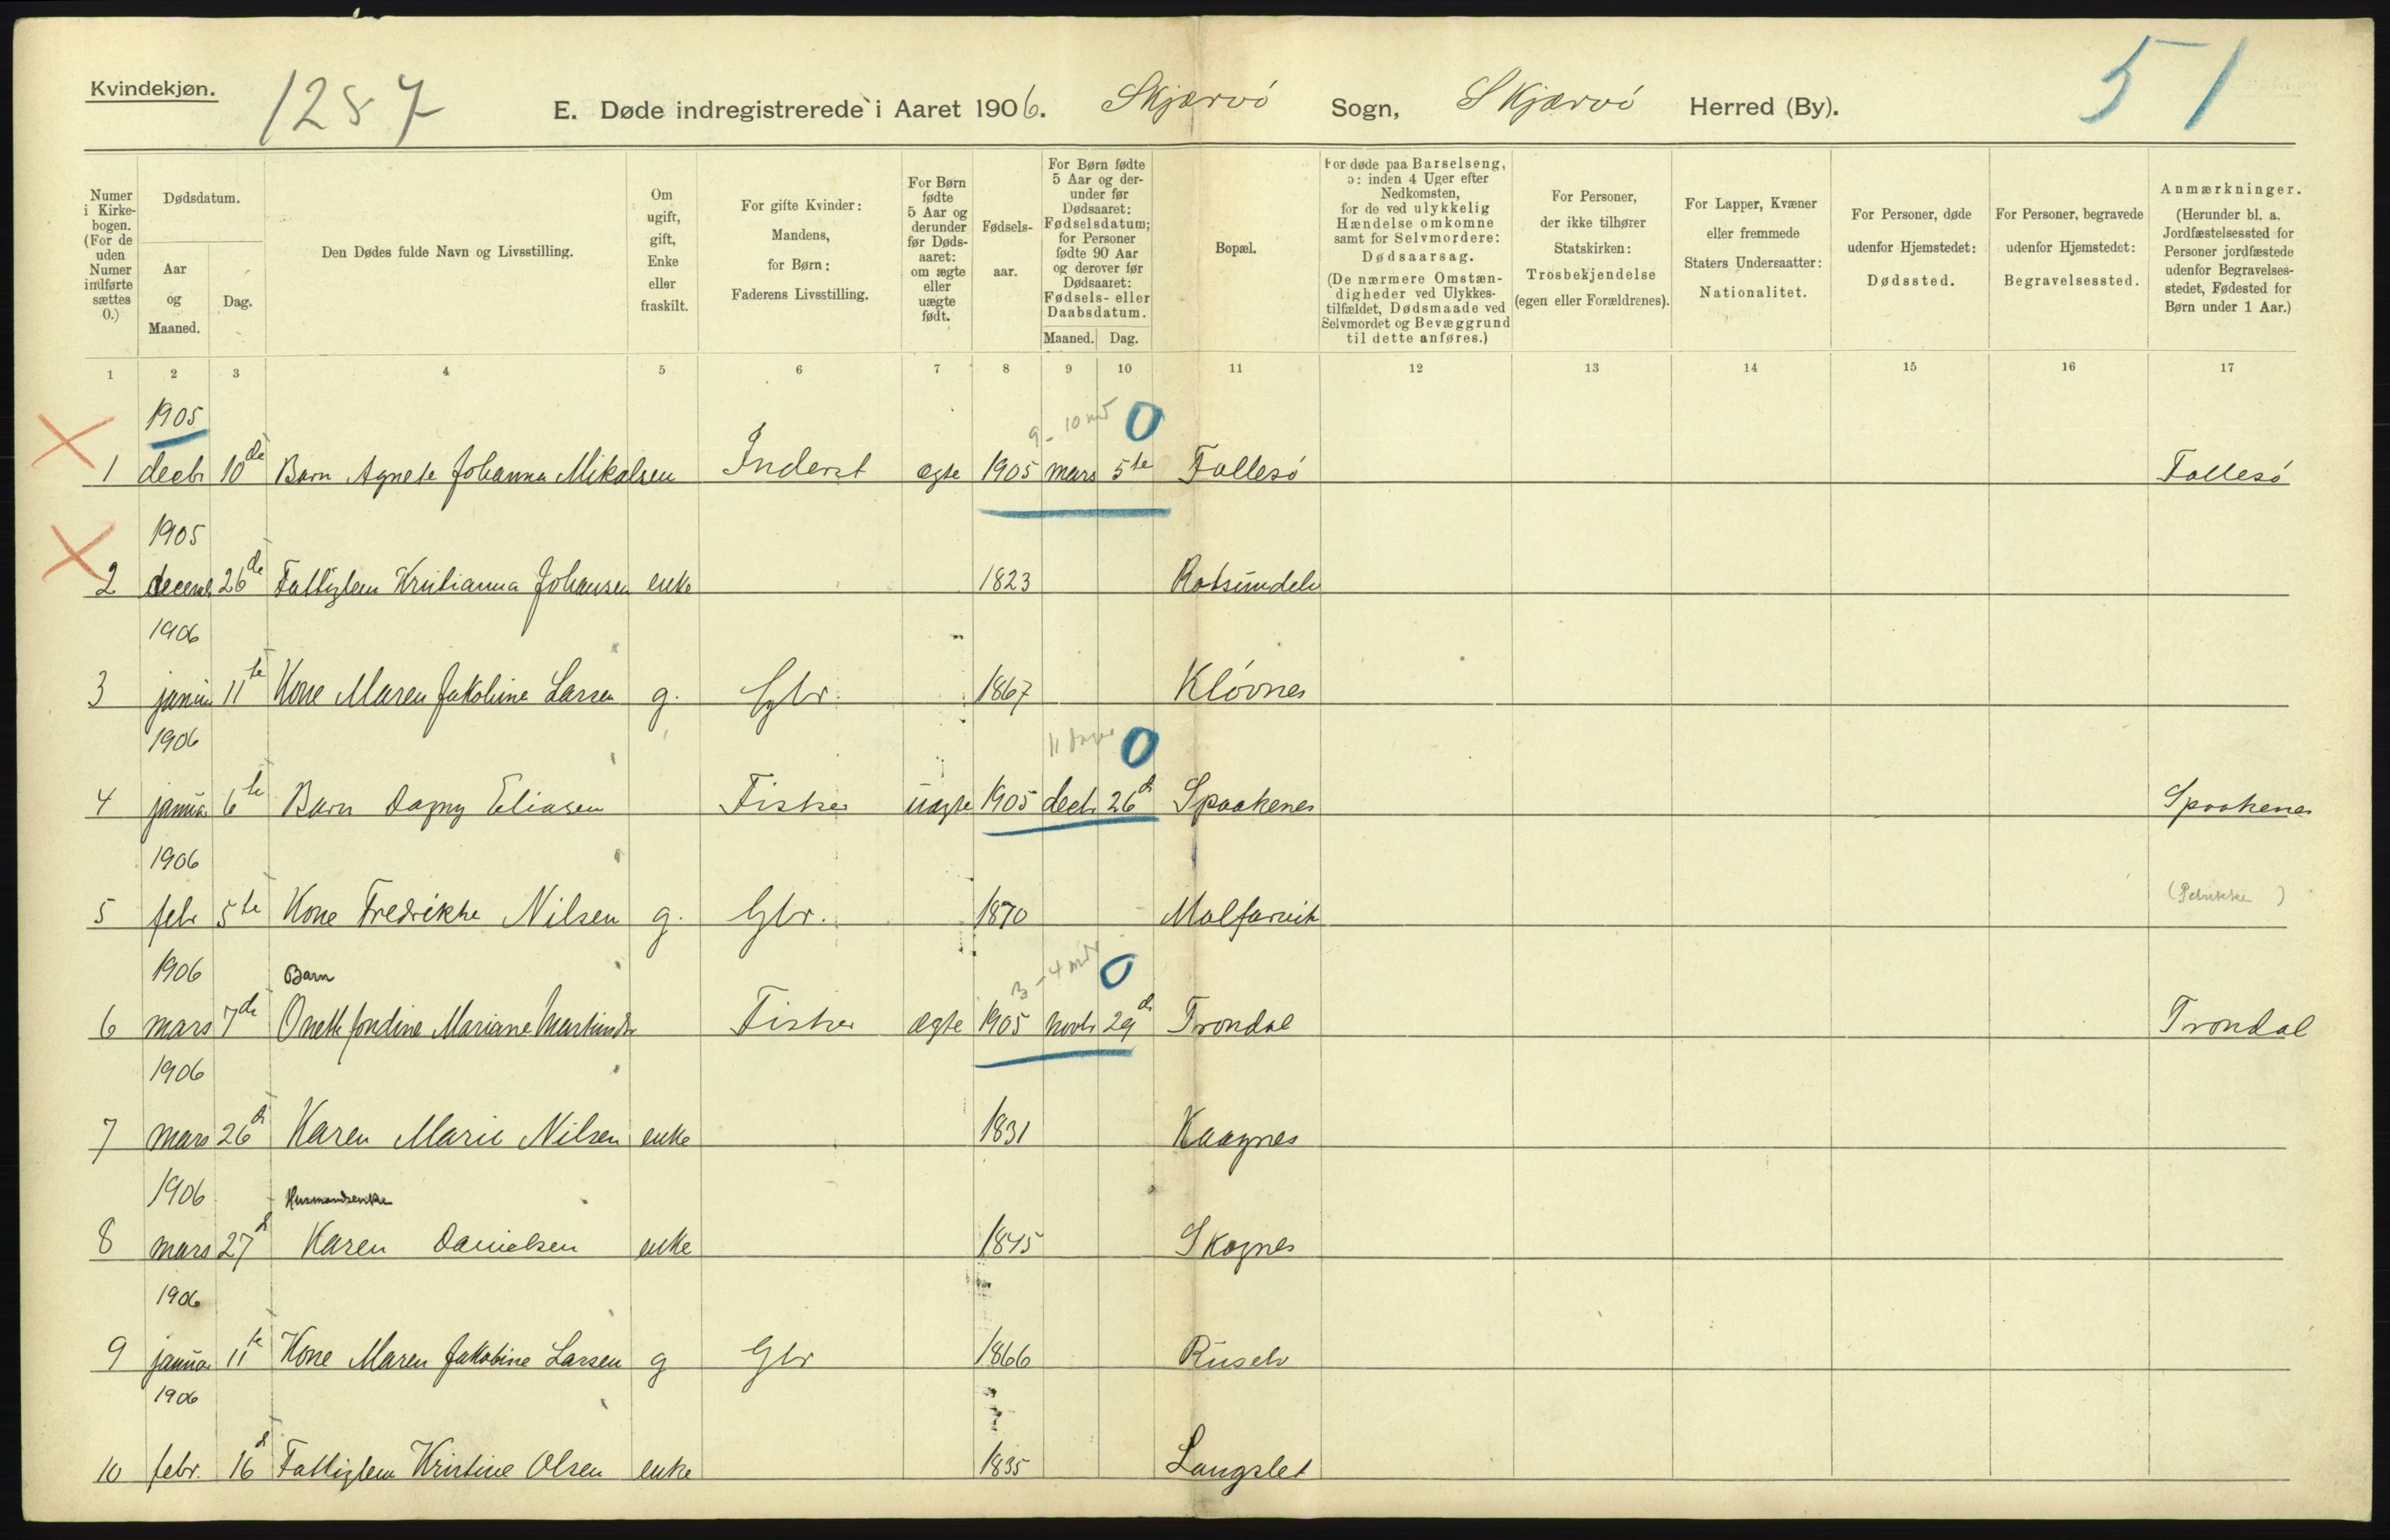 Kvindekjøn.
1287
E. Døde indregistrerede i Aaret 1906. Skjærvö Sogn, Skjærvö Herred (By).
51
Numer i Kirkebogen. (For de uden Numer indførte sættes 0.)
Dødsdatum.
Aar og Maaned.
Dag.
Den Dødes fulde Navn og Livsstilling.
Om ugift, gift, Enke eller fraskilt.
For gifte Kvinder: Mandens, for Børn: Faderens Livsstilling.
For Børn fødte 5 Aar og derunder før Dødsaaret: om ægte eller uægte født.
Fødselsaar.
For Børn fødte 5 Aar og derunder før Dødsaaret: Fødselsdatum; for Personer fødte 90 Aar og derover før Dødsaaret: Fødsels- eller Daabsdatum.
Maaned. Dag.
Bopæl.
For døde paa Barselseng, ɔ: inden 4 Uger efter Nedkomsten, for de ved ulykkelig Hændelse omkomne samt for Selvmordere: Dødsaarsag. (De nærmere Omstændigheder ved Ulykkestilfældet, Dødsmaade ved Selvmordet og Bevæggrund til dette anføres.)
For Personer, der ikke tilhører Statskirken: Trosbekjendelse (egen eller Forældrenes).
For Lapper, Kvæner eller fremmede Staters Undersaatter: Nationalitet.
For Personer, døde udenfor Hjemstedet: Dødssted.
For Personer, begravede udenfor Hjemstedet: Begravelsessted.
Anmærkninger. (Herunder bl. a. Jordfæstelsessted for Personer jordfæstede udenfor Begravelsesstedet, Fødested for Børn under 1 Aar.)
1 2 3 4 5 6 7 8 9 10 11 12 13 14 15 16 17
1905 9-10 md 0
1 decbr 10de Barn Agnete Johanna Mikalsen Inderst ægte 1905 mars 5te Follesö Follesö
1905
2 decemb 26de Fattiglem Kristianna Johansen enke 1823 Rotsundelv
1906
3 janua 11te Kone Maren Jakobine Larsen g. Gbr. 1867 Klövnes
1906 11 dage 0
4 janua 6te Barn Dagny Eliasen Fisker uægte 1905 decbr 26d Spaakenes Spaakenes
1906
5 febr 5te Kone Fredrikke Nilsen g. Gbr. 1870 Molfarvik (Petrikke)
1906 Barn 3-4 mdr 0
6 mars 7de Onette Jondine Mariane Martinsdr Fisker ægte 1905 novbr 29d Trondal Trondal
1906
7 mars 26d Karen Marie Nilsen enke 1831 Kaagnes
1906 Husmandsenke
8 mars 27d Karen Danielsen enke 1845 Skognes
1906
9 janua 11te Kone Maren Jakobine Larsen g Gbr 1866 Ruselv
1906
10 febr. 16d Fattiglem Kristine Olsen enke 1835 Langslet